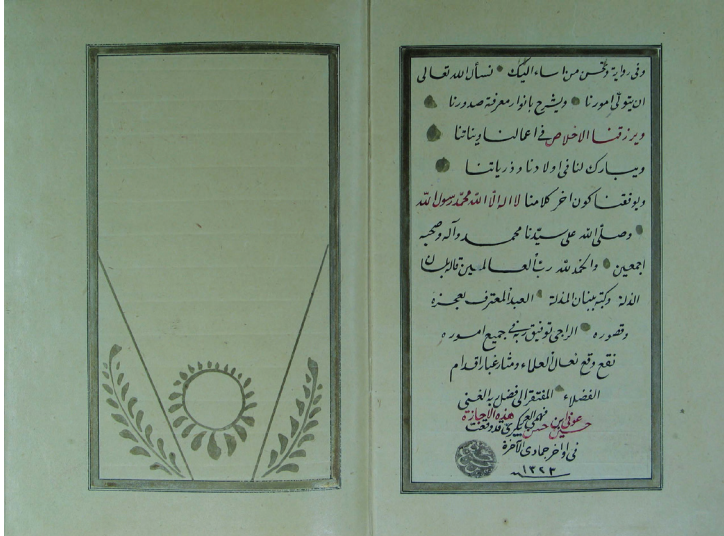 وفى رواية وتحسن من اساء اليك نسأل الله تعالى
ان يتولى امورنا ويشرح بانوار معرفته صدورنا
ويرزقنا الاخلاص فى اعمالنا ونياتنا
ويبارك لنا فى اولادنا وذرياتنا
ويوفقنا كون اخر كلامنا لا اله الا الله محمد رسول الله
وصلى الله على سيدنا محمد وآله وصحبه
اجمعين والحمد لله رب العالمين قاله بلسان
الذلة وكتبه ببنان المذلة العبد المعترف بعجزه
وقصوره الراجى توفيق ربه فى جميع اموره
نقع وقع نعال العلماء ومثار غبار اقدام
الفضلاء المفتقر الى فضل ربه الغنى
حسين عونى ابن حسن هذه الاجازة
قد وقعت
فى اواخر جمادى الآخرة
١٣٢٣